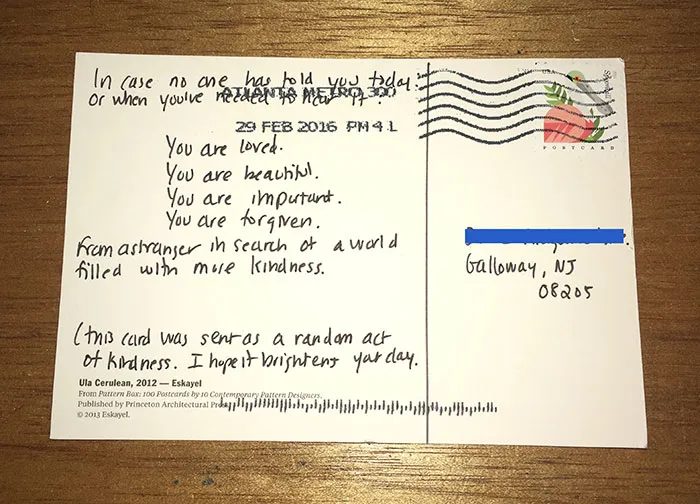 In case no one has told you today:
or when you've needed to hear it:
ATLANTA METRO 300
29 FEB 2016 PM 4 L
You are loved.
You are beautiful.
You are important.
You are forgiven.
From a stranger in search of a world
filled with more kindness.
(this card was sent as a random act
of kindness. I hope it brightens your day.
Ula Cerulean, 2012 — Eskayel
From Pattern Box: 100 Postcards by 10 Contemporary Pattern Designers.
Published by Princeton Architectural
© 2013 Eskayel.
POSTCARD
Galloway, NJ
08205